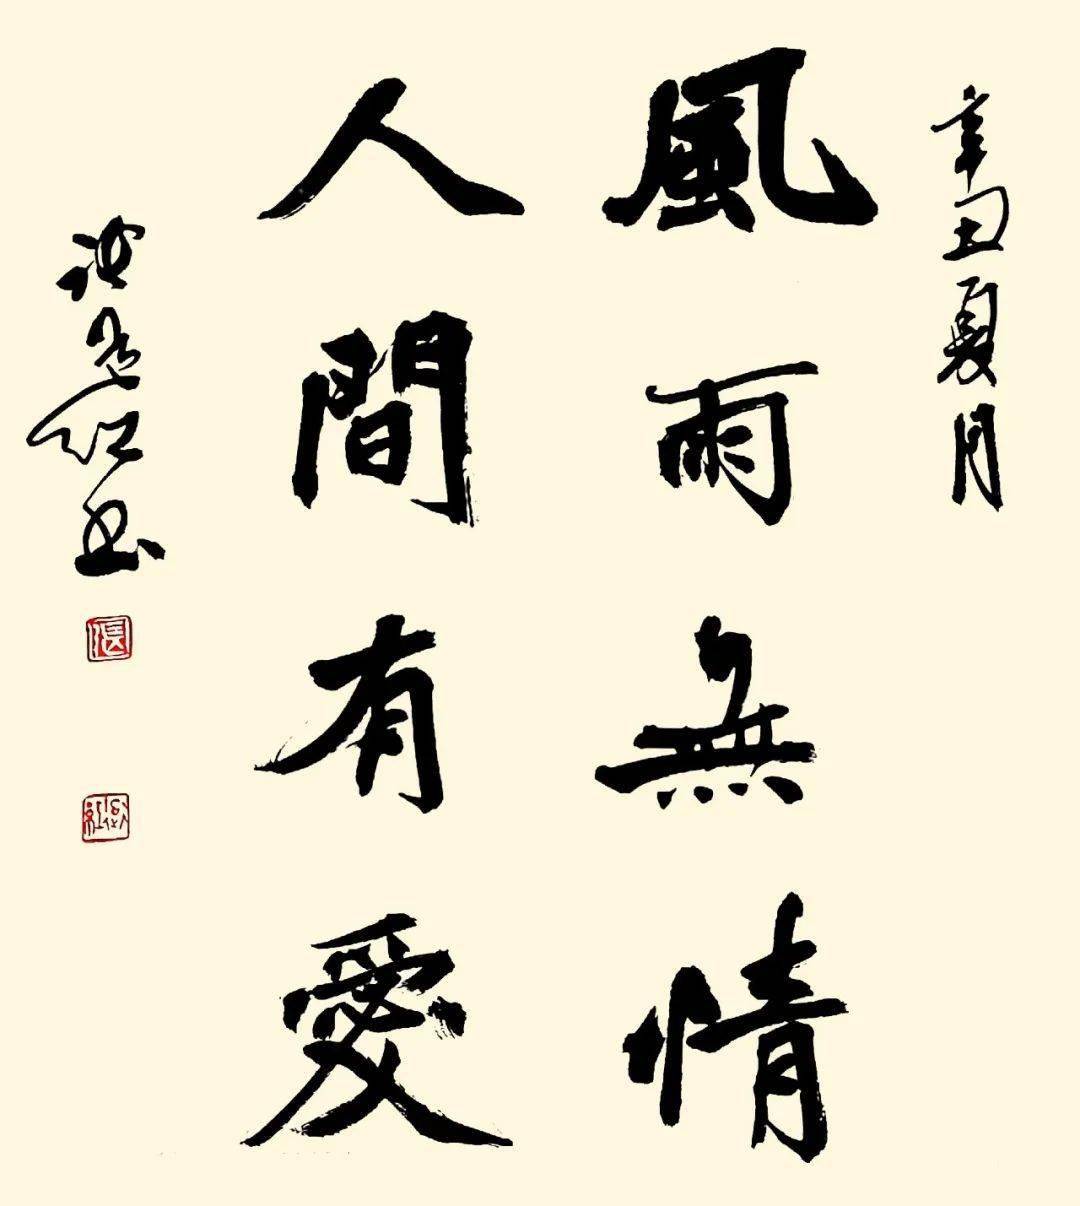 辛丑夏月
風雨無情
人間有愛
红书
張